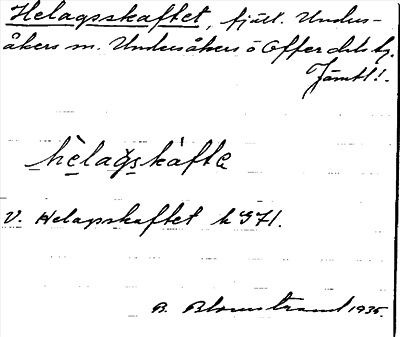 Helagsskaftet, fjäll. Unders-
åkers sn. Undersåkers o Offerdals tg.
Jämtl.
hèlag̬skàftɐ
V. Helagsskaftet h 971.
B. Blomstrand 1935.